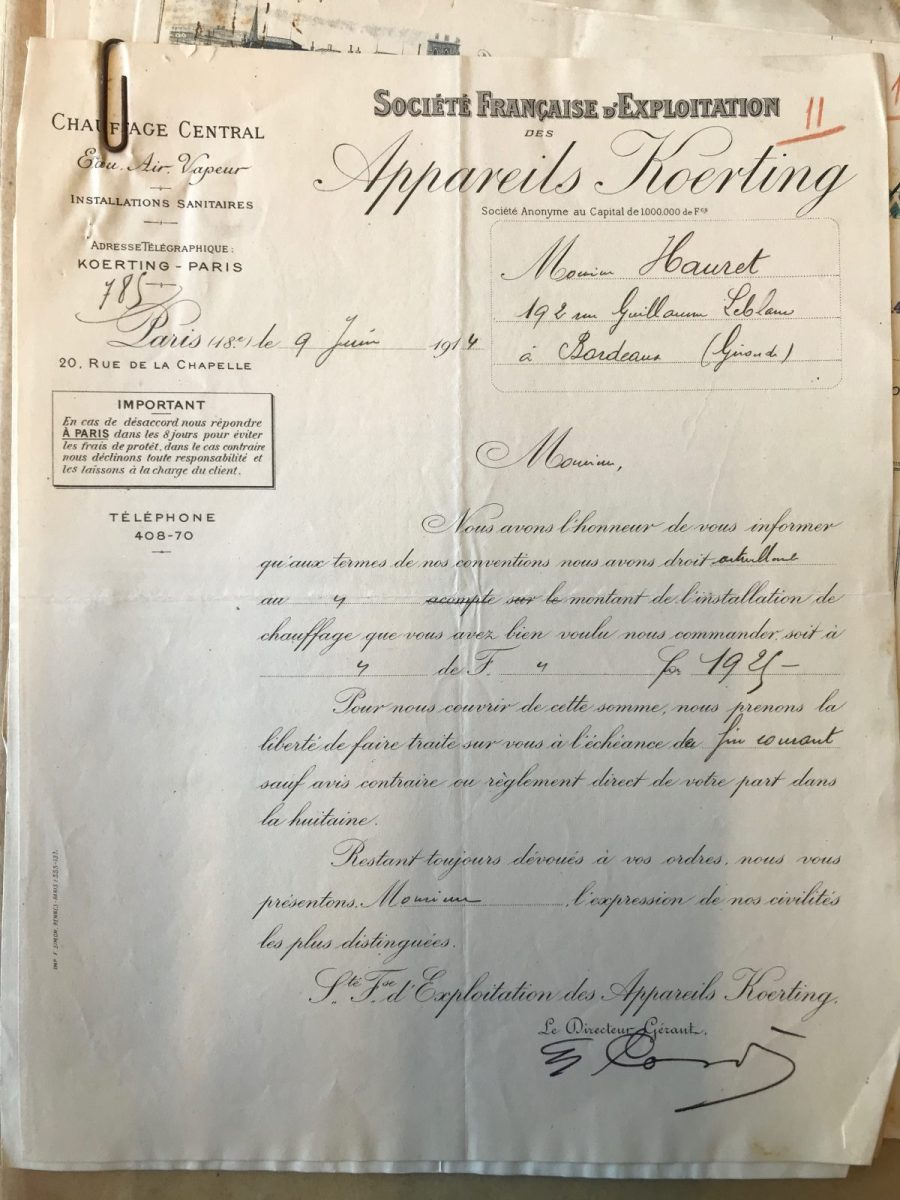 11
SOCIÉTÉ FRANÇAISE D'EXPLOITATION
DES
Appareils Koerting
Société Anonyme au Capital de 1.000.000 de Fcs
CHAUFFAGE CENTRAL
Eau. Air. Vapeur
INSTALLATIONS SANITAIRES
ADRESSE TÉLÉGRAPHIQUE:
KOERTING - PARIS
785
Paris (18e) le 9 Juin 1914
20, RUE DE LA CHAPELLE
Monsieur Hauret
192 rue Guillaume Leblanc
à Bordeaux (Gironde)
IMPORTANT
En cas de désaccord nous répondre
À PARIS dans les 8 jours pour éviter
les frais de protêt, dans le cas contraire
nous déclinons toute responsabilité et
les laissons à la charge du client.
TÉLÉPHONE
408-70
Monsieur,
Nous avons l'honneur de vous informer
qu'aux termes de nos conventions nous avons droit actuellement
au " acompte sur le montant de l'installation de
chauffage que vous avez bien voulu nous commander, soit à
" de F. " frs 1925-
Pour nous couvrir de cette somme, nous prenons la
liberté de faire traite sur vous à l'échéance de fin courant
sauf avis contraire ou règlement direct de votre part dans
la huitaine.
Restant toujours dévoués à vos ordres, nous vous
présentons, Monsieur, l'expression de nos civilités
les plus distinguées.
Sté Fse d'Exploitation des Appareils Koerting.
Le Directeur Gérant,